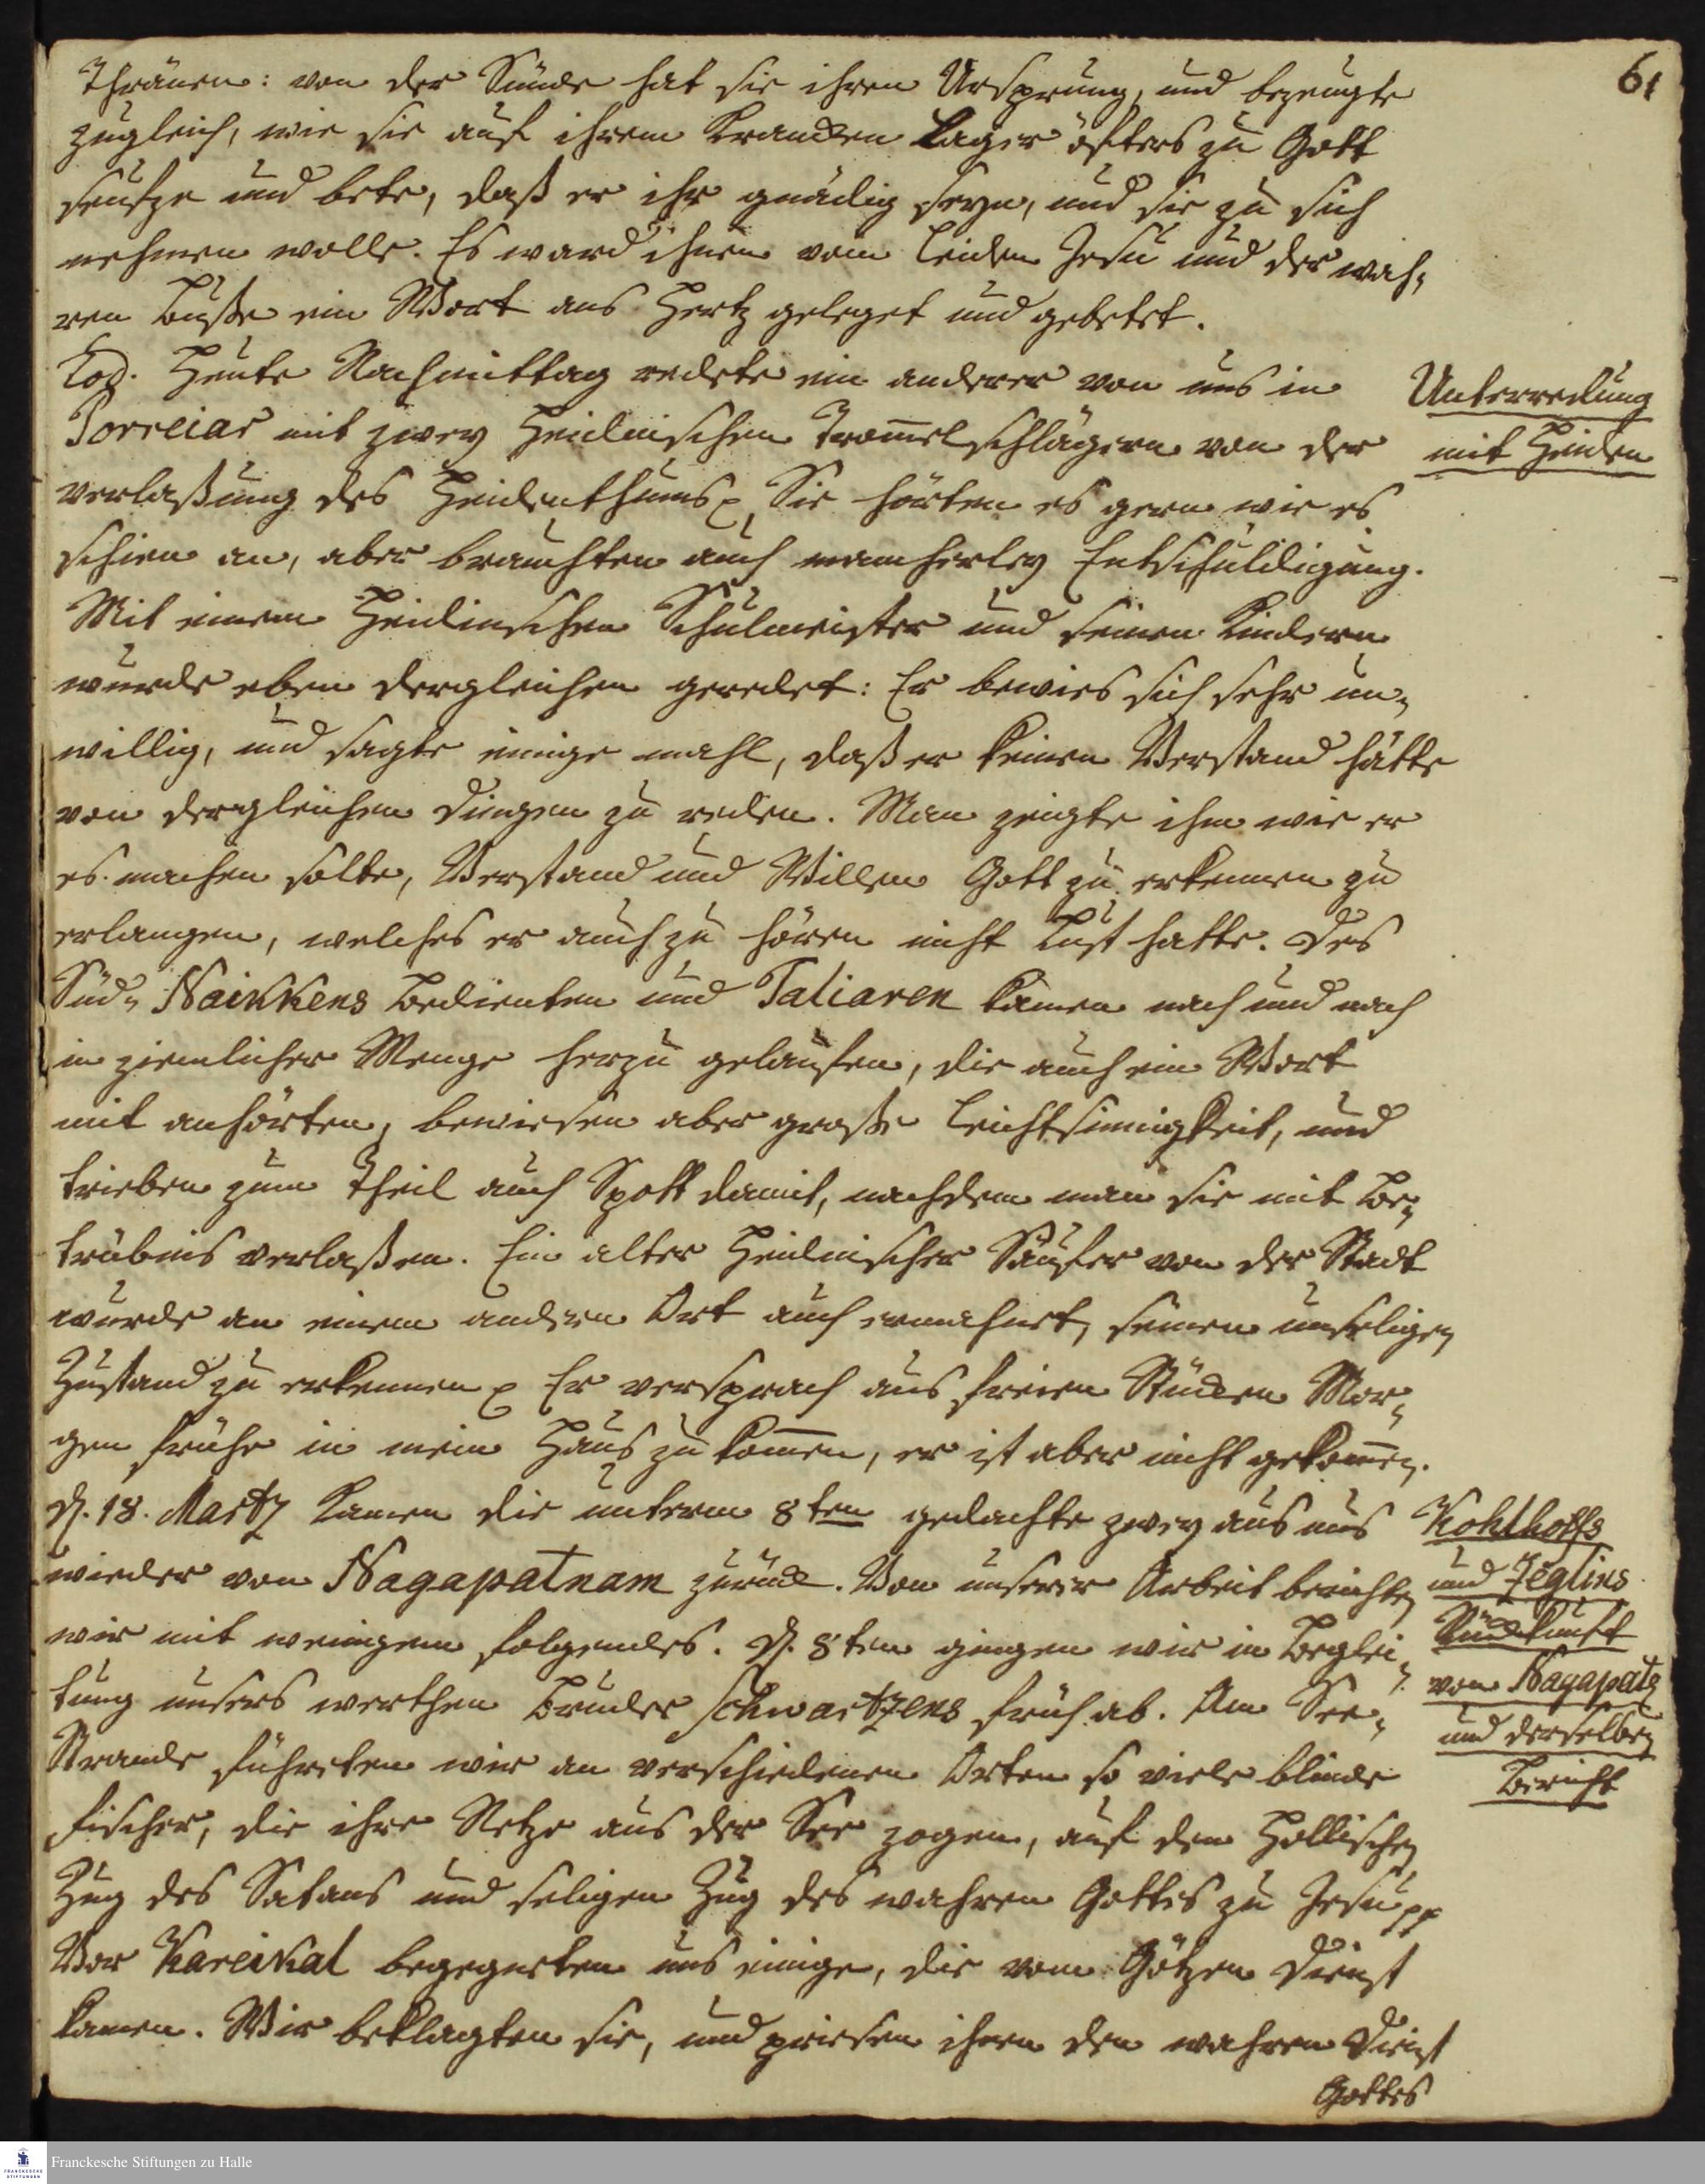 61
Thränen: von der Sünde hat sie ihren Ursprung, und bezeugte
zugleich, wie sie auf ihrem Krancken Lager öfters zu Gott
seufze und bete, daß er ihr gnädig seyn, und sie zu sich
nehmen wolle. Es ward ihnen vom Leiden Jesu und der wah-
ren Buße ein Wort ans Hertz geleget und gebetet.
Eod. Heute Nachmittag redete ein anderer von uns in
Unterredung
Porreiar mit zwey Heidnischen Trom̄elschlägern von der
mit Heiden
verlaßung des Heidenthums Sie hörten es gern wie es
schien an, aber brauchten auch mancherley Entschuldigung.
Mit einem Heidnischen Schulmeister und seinen Kindern
wurde eben dergleichen geredet: Er bewies sich sehr un-
willig, und sagte einige mahl, daß er keinen Verstand hätte
von dergleichen Dingen zu reden. Man zeigte ihm wie er
es machen solte, Verstand und Willen Gott zu erkennen zu
erlangen, welches er auch zu hören nicht Lust hatte. Des
Süd- Naikkens Bedienten und Taliaren kamen nach und nach
in ziemlicher Menge herzu gelaufen, die auch ein Wort
mit anhörten, bewiesen aber große Leichtsinnigkeit, und
trieben zum Theil auch Spott damit, nachdem man sie mit Be-
trübnis verlaßen. Ein alter Heidnischer Säufer von der Stadt
wurde an einem andern Ort auch ermahnet, seinen unseligen
Zustand zu erkennen Er versprach aus freien Stücken Mor-
gen frühe in mein Haus zu kom̄en, er ist aber nicht gekom̄en.
d. 18. Martz kamen die unterm 8ten gedachte zwey aus uns
Kohlhoffs
wieder von Nagapatnam zurück. Von unserer Arbeit berichten
und Zeglins
wir mit wenigem folgendes. d. 8ten gingen wir in Beglei-
Rückkunft
tung unsers werthen Bruder Schwartzens früh ab. Am See-
von Nagapatn
Strande führeten wir an verschiedenen Orten so viele blinde
und derselben
Bericht
Fischer, die ihre Netze aus der See zogen, auf den Höllischen
Zug des Satans und seligen Zug des wahren Gottes zu Jesu pp
Vor Kareikal begegneten uns einige, die vom Götzen Dienst
kamen. Wir beklagten sie, und priesen ihnen den wahren Dienst
Gottes
Franckesche Stiftungen zu Halle
FRANCKESCHE STIFTUNGEN